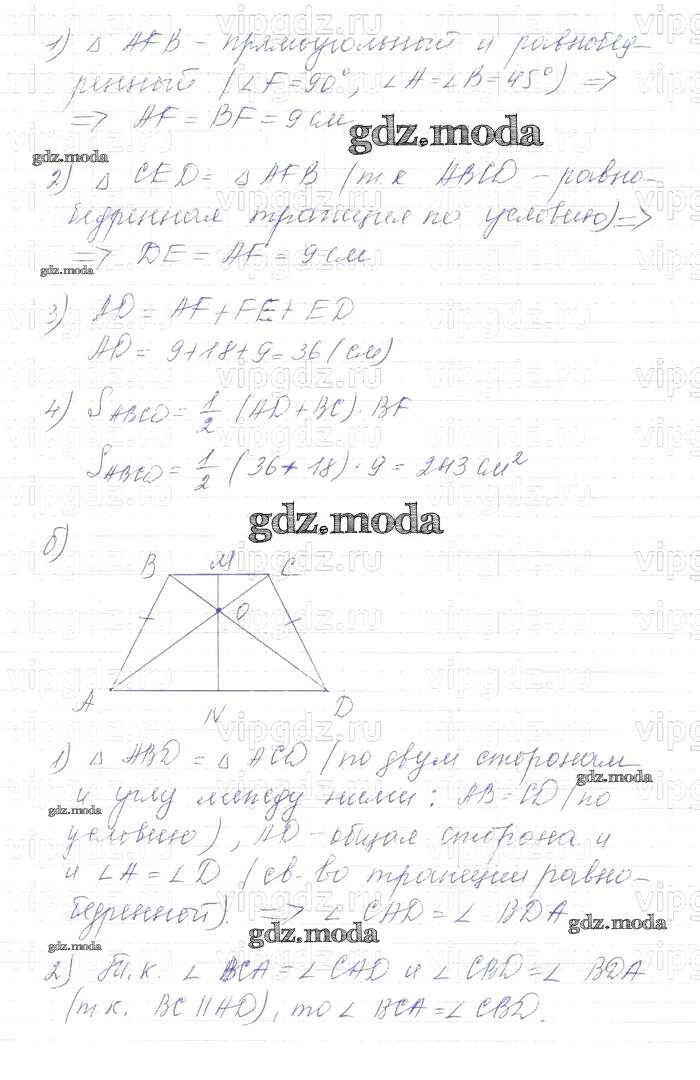 1) △ AFB – прямоугольный и равнобед-
ренный (∠F = 90°, ∠A = ∠B = 45°) =>
=> AF = BF = 9 см
gdz.moda
gdz.moda
2) △ CED = △ AFB (т.к. ABCD – равно-
бедренная трапеция по условию) =>
=> DE = AF = 9 см
gdz.moda
3) AD = AF + FE + ED
AD = 9 + 18 + 9 = 36 (см)
4) S ABCD = 1/2 (AD + BC) · BF
S ABCD = 1/2 (36 + 18) · 9 = 243 см²
gdz.moda
б)
B M C
O
A N D
1) △ ABD = △ ACD (по двум сторонам
gdz.moda
и углу между ними: AB = CD (по
gdz.moda
условию), AD – общая сторона и
и ∠A = ∠D (св-во трапеции равно-
бедренной) => ∠ CAD = ∠ BDA
gdz.moda
gdz.moda
gdz.moda
2) Т.к. ∠ BCA = ∠ CAD и ∠ CBD = ∠ BDA
(т.к. BC || AD), то ∠ BCA = ∠ CBD.
vipgdz.ru